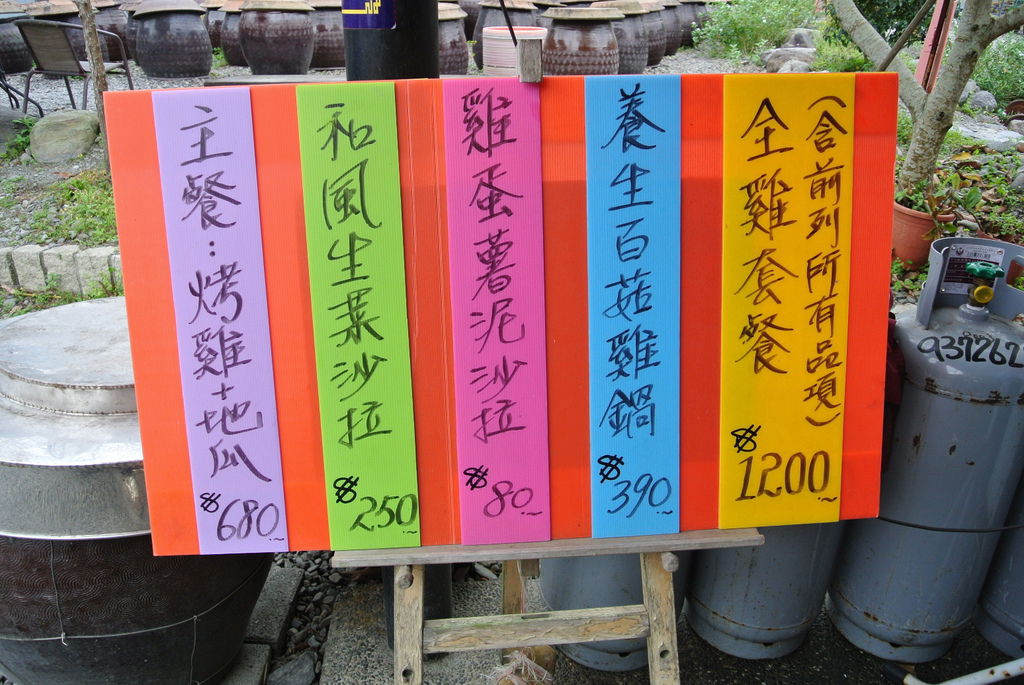 主餐：烤雞+地瓜
$680~
和風生菜沙拉
$250~
雞蛋薯泥沙拉
$80~
養生百菇雞鍋
$390~
(含前列所有品項)
全雞套餐
$1200~
937262